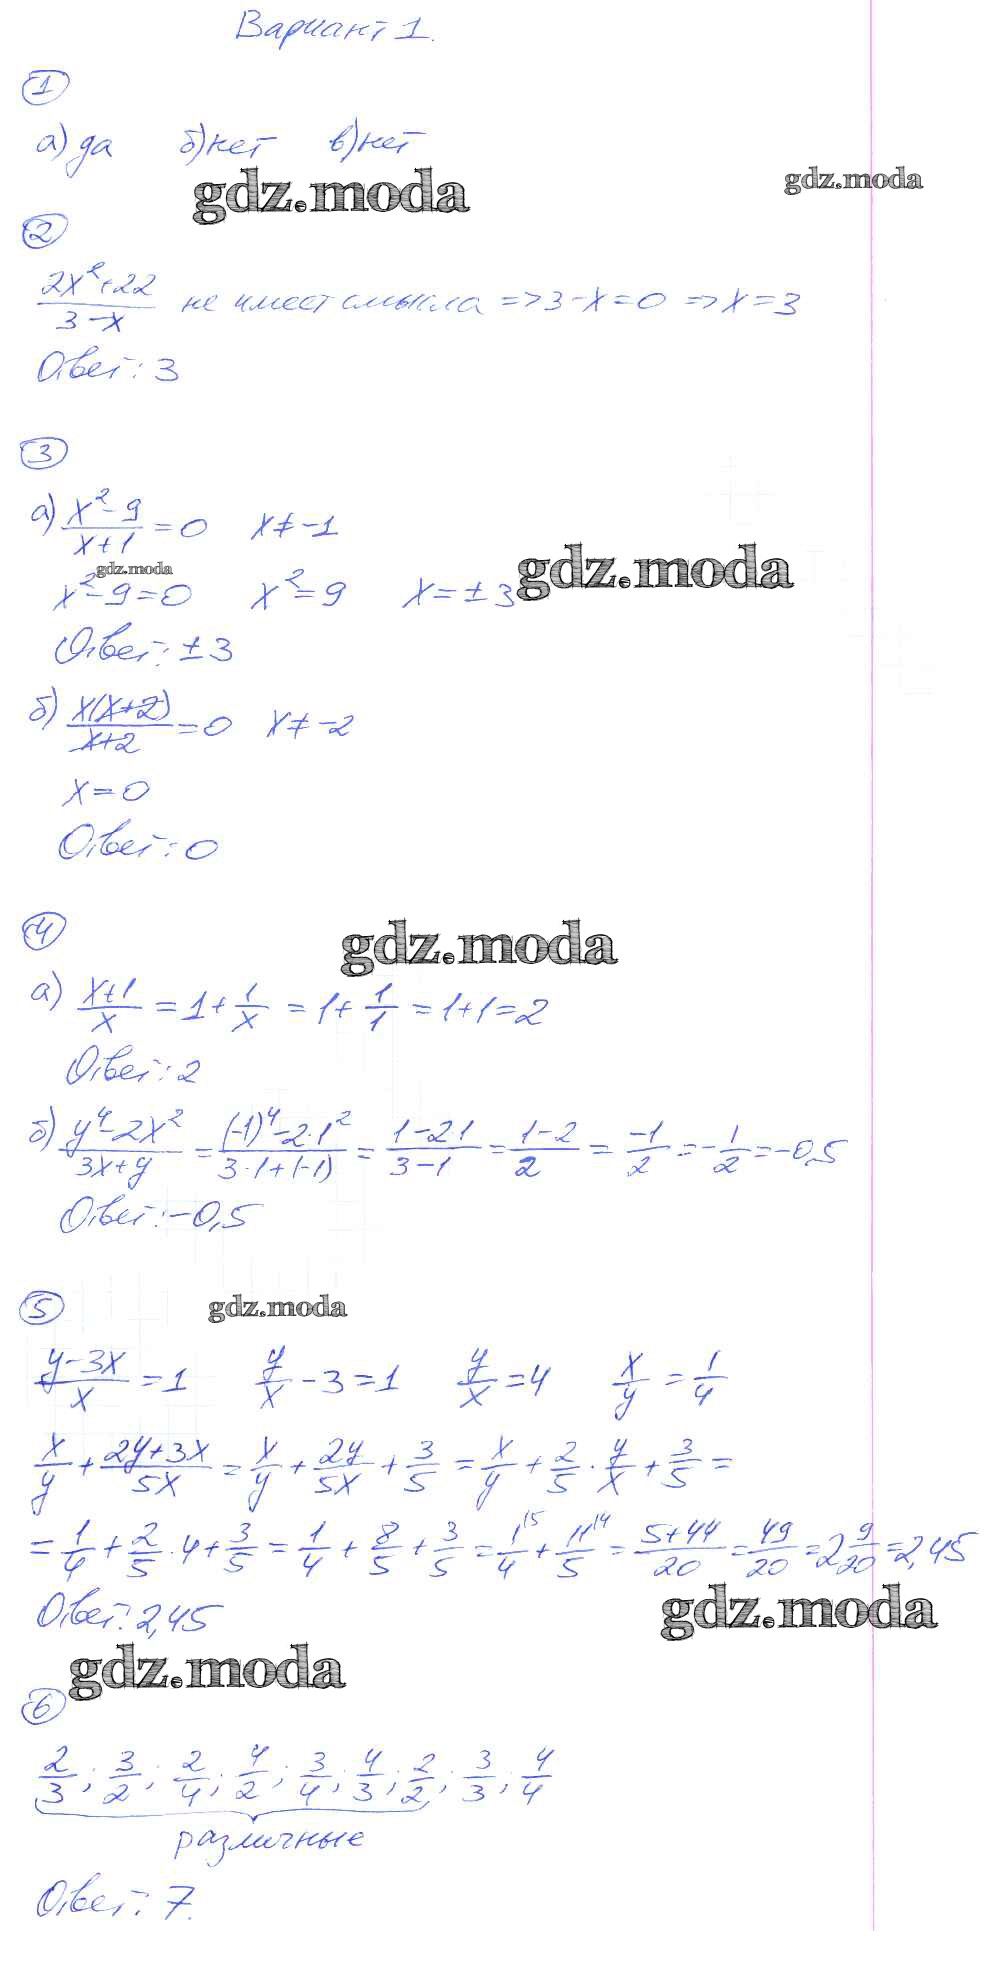 Вариант 1.
1
а) да б) нет в) нет
gdz.moda gdz.moda
2
(2x²+22)/(3-x) не имеет смысла => 3-x=0 => x=3
Ответ: 3
3
а) (x²-9)/(x+1) = 0 x≠-1
gdz.moda gdz.moda
x²-9=0 x²=9 x=±3
Ответ: ±3
б) x(x+2)/(x+2) = 0 x≠-2
x=0
Ответ: 0
4
gdz.moda
а) (x+1)/x = 1+1/x = 1+1/1 = 1+1=2
Ответ: 2
б) (y⁴-2x²)/(3x+y) = ((-1)⁴-2·1²)/(3·1+(-1)) = (1-2·1)/(3-1) = (1-2)/2 = -1/2 = -1/2 = -0,5
Ответ: -0,5
5
gdz.moda
(y-3x)/x = 1 y/x - 3 = 1 y/x = 4 x/y = 1/4
x/y + (2y+3x)/5x = x/y + 2y/5x + 3/5 = x/y + 2/5 · y/x + 3/5 =
= 1/4 + 2/5 · 4 + 3/5 = 1/4 + 8/5 + 3/5 = 1/4 ⁽⁵ + 11/5 ⁽⁴ = (5+44)/20 = 49/20 = 2 9/20 = 2,45
Ответ: 2,45
gdz.moda
gdz.moda
6
2/3; 3/2; 2/4; 4/2; 3/4; 4/3; 2/2; 3/3; 4/4
различные
Ответ: 7.